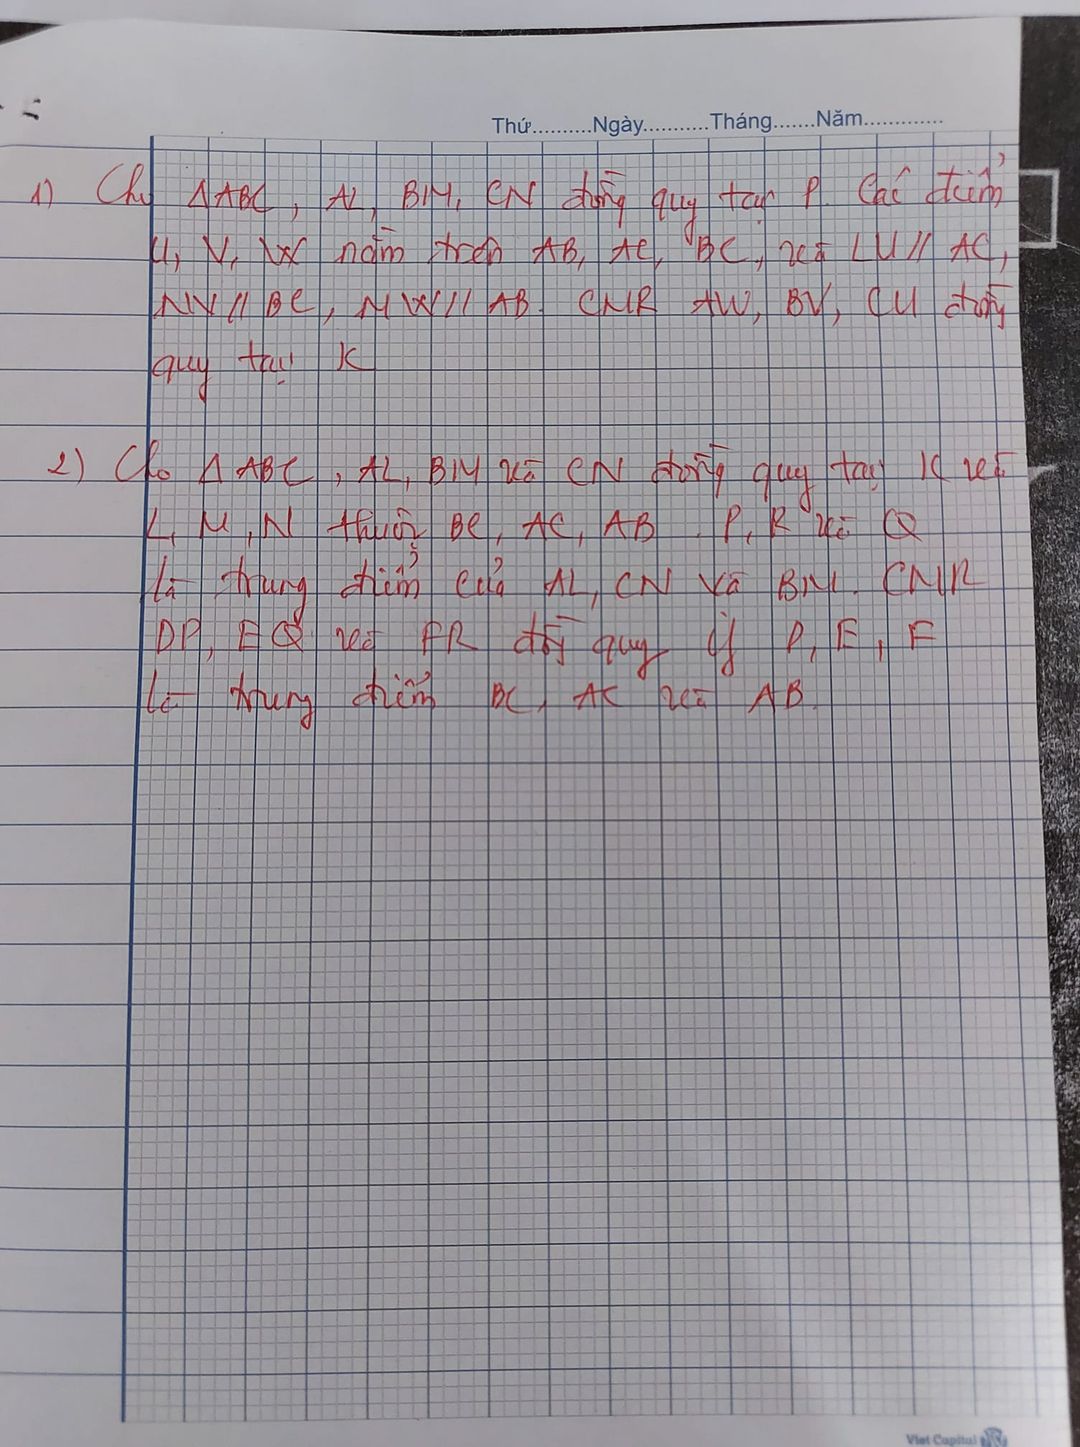 Thứ..........Ngày...........Tháng.......Năm.............
1) Cho ΔABC, AL, BM, CN đồng quy tại P. Các điểm
U, V, W nằm trên AB, AC, BC, và LU // AC,
NV // BC, MW // AB. CMR AW, BV, CU đồng
quy tại K
2) Cho ΔABC, AL, BM và CN đồng quy tại K với
L, M, N thuộc BC, AC, AB. P, R và Q
là trung điểm của AL, CN và BM. CMR
DP, EQ và FR đồng quy if D, E, F
là trung điểm BC, AC và AB.
Viet Capital